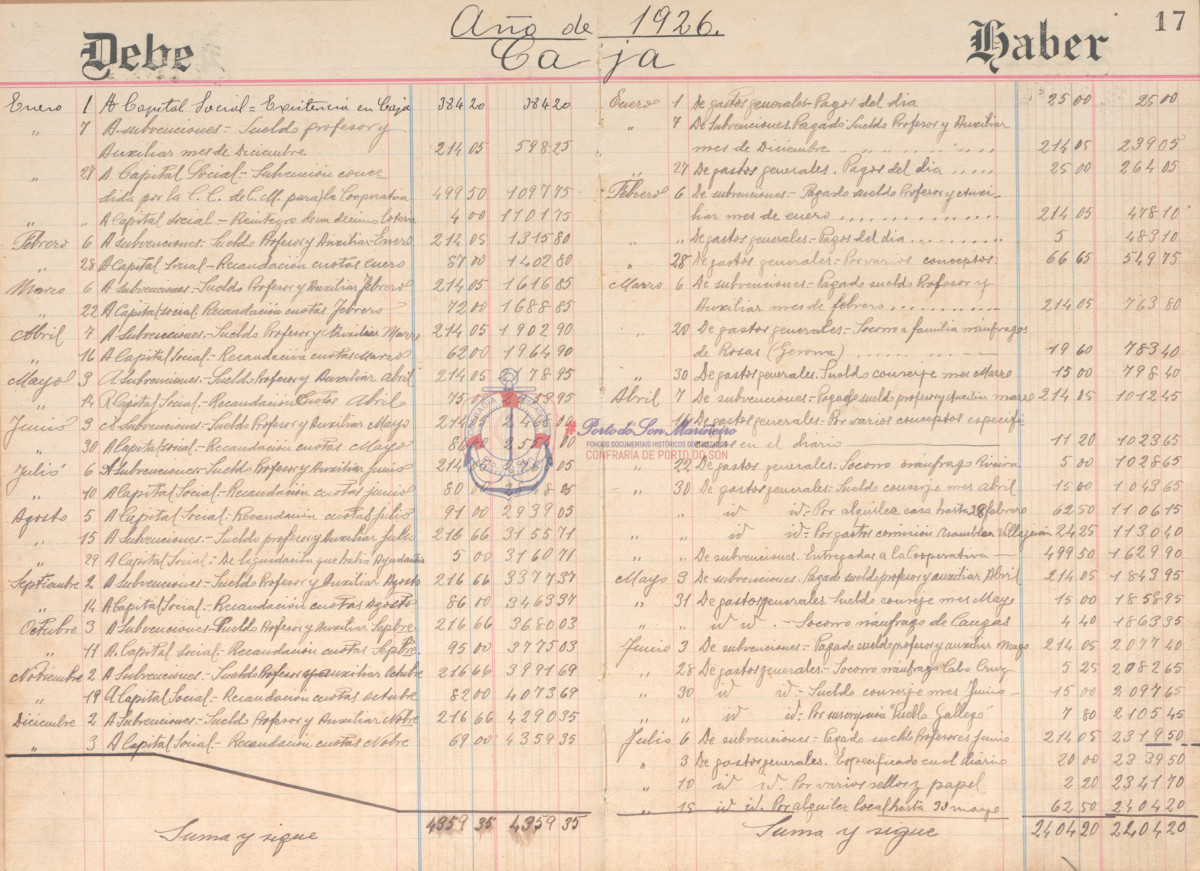 Año de 1926.
17
Debe
Caja
Haber
Enero 1 A Capital Social = Existencia en Caja 384 20 384 20
" 7 A subvenciones - Sueldo profesor y
Auxiliar mes de Diciembre 214 05 598 25
" 27 A Capital Social - Subvención conce
dida por la C. C. de C. M. para la Cooperativa 499 50 1097 75
" A Capital Social - Reintegro de un décimo Lotería 4 00 1101 75
Febrero 6 A subvenciones - Sueldo Profesor y Auxiliar Enero 214 05 1315 80
" 28 A Capital Social - Recaudación cuotas enero 87 00 1402 80
Marzo 6 A subvenciones - Sueldo Profesor y Auxiliar febrero 214 05 1616 85
" 22 A Capital Social Recaudación cuotas febrero 72 00 1688 85
Abril 7 A Subvenciones - Sueldo Profesor y Auxiliar Marzo 214 05 1902 90
" 16 A Capital Social - Recaudación cuotas Marzo 62 00 1964 90
Mayo 3 A Subvenciones - Sueldo Profesor y Auxiliar abril 214 05 2178 95
" 14 A Capital Social - Recaudación cuotas Abril 75 00
Junio 3 A Subvenciones - Sueldo Profesor y Auxiliar Mayo 214
" 30 A Capital Social - Recaudación cuotas Mayo 86 00
Julio 6 A Subvenciones - Sueldo Profesor y Auxiliar junio 214 05
" 10 A Capital Social - Recaudación cuotas junio 80 00
Agosto 5 A Capital Social - Recaudación cuotas julio 91 00 2939 05
" 15 A Subvenciones - Sueldo profesor y Auxiliar julio 216 66 3155 71
" 29 A Capital Social - De liquidación que había Ayudantía 5 00 3160 71
Septiembre 2 A Subvenciones - Sueldo Profesor y Auxiliar Agosto 216 66 3377 37
" 14 A Capital Social - Recaudación cuotas Agosto 86 00 3463 37
Octubre 3 A Subvenciones - Sueldo Profesor y Auxiliar Sepbre. 216 66 3680 03
" 11 A Capital Social - Recaudación cuotas Sepbre. 95 00 3775 03
Noviembre 2 A Subvenciones - Sueldo Profesor y auxiliar Octubre 216 66 3991 69
" 19 A Capital Social - Recaudación cuotas octubre 82 00 4073 69
Diciembre 2 A Subvenciones - Sueldo Profesor y Auxiliar Nobre 216 66 4290 35
" 3 A Capital Social - Recaudación cuotas Nobre 69 00 4359 35
Suma y sigue 4359 35 4359 35
Enero 1 De gastos generales - Pagos del dia 25 00 25 00
" 7 De Subvenciones. Pagado Sueldo Profesor y Auxiliar
mes de Diciembre 214 05 239 05
" 27 De gastos generales. Pagos del dia 25 00 264 05
Febrero 6 De subvenciones - Pagado sueldo Profesor y Auxi-
liar mes de enero 214 05 478 10
" " De gastos generales - Pagos del dia 5 483 10
" 28 De gastos generales - Por varios conceptos. 66 65 549 75
Marzo 6 De subvenciones - Pagado sueldo Profesor y
Auxiliar mes de febrero 214 05 763 80
" 20 De gastos generales - Socorro a familia naufragos
de Rosas (Gerona) 19 60 783 40
" 30 De gastos generales. Sueldo conserje mes Marzo 15 00 798 40
Abril 7 De subvenciones - Pagado sueldo profesor y Auxiliar marzo 214 05 1012 45
De gastos generales - Por varios conceptos especifi-
cados en el diario 11 20 1023 65
" 22 De gastos generales. Socorro naufrago Riveira 5 00 1028 65
" 30 De gastos generales - Sueldo conserje mes Abril 15 00 1043 65
" id id - Por alquiler casa hasta 28 febrero 62 50 1106 15
" id id - Por gastos comision Asamblea Villagarcia 24 25 1130 40
" " De subvenciones. Entregadas a la Cooperativa 499 50 1629 90
Mayo 3 De subvenciones. Pagado sueldo profesor y auxiliar Abril 214 05 1843 95
" 31 De gastos generales - Sueldo conserje mes Mayo 15 00 1858 95
" " id id. - Socorro naufrago de Cangas 4 40 1863 35
Junio 3 De subvenciones - Pagado sueldo profesor y auxiliar Mayo 214 05 2077 40
" 28 De gastos generales - Socorro naufrago Cabo Cruz 5 25 2082 65
" 30 id id. - Sueldo conserje mes Junio 15 00 2097 65
" " id id. Por suscripción "Pueblo Gallego" 7 80 2105 45
Julio 6 De subvenciones - Pagado sueldo Profesores junio 214 05 2319 50
" 3 De gastos generales. Especificado en el diario 20 00 2339 50
" 10 id id. Por varios sellos y papel 2 20 2341 70
" 15 id id. Por alquiler local hasta 30 mayo 62 50 2404 20
Suma y sigue 2404 20 2404 20
Porto do Son Mariñeiro
FONDOS DOCUMENTAIS HISTÓRICOS DIXITALIZADOS
CONFRARÍA DE PORTO DO SON